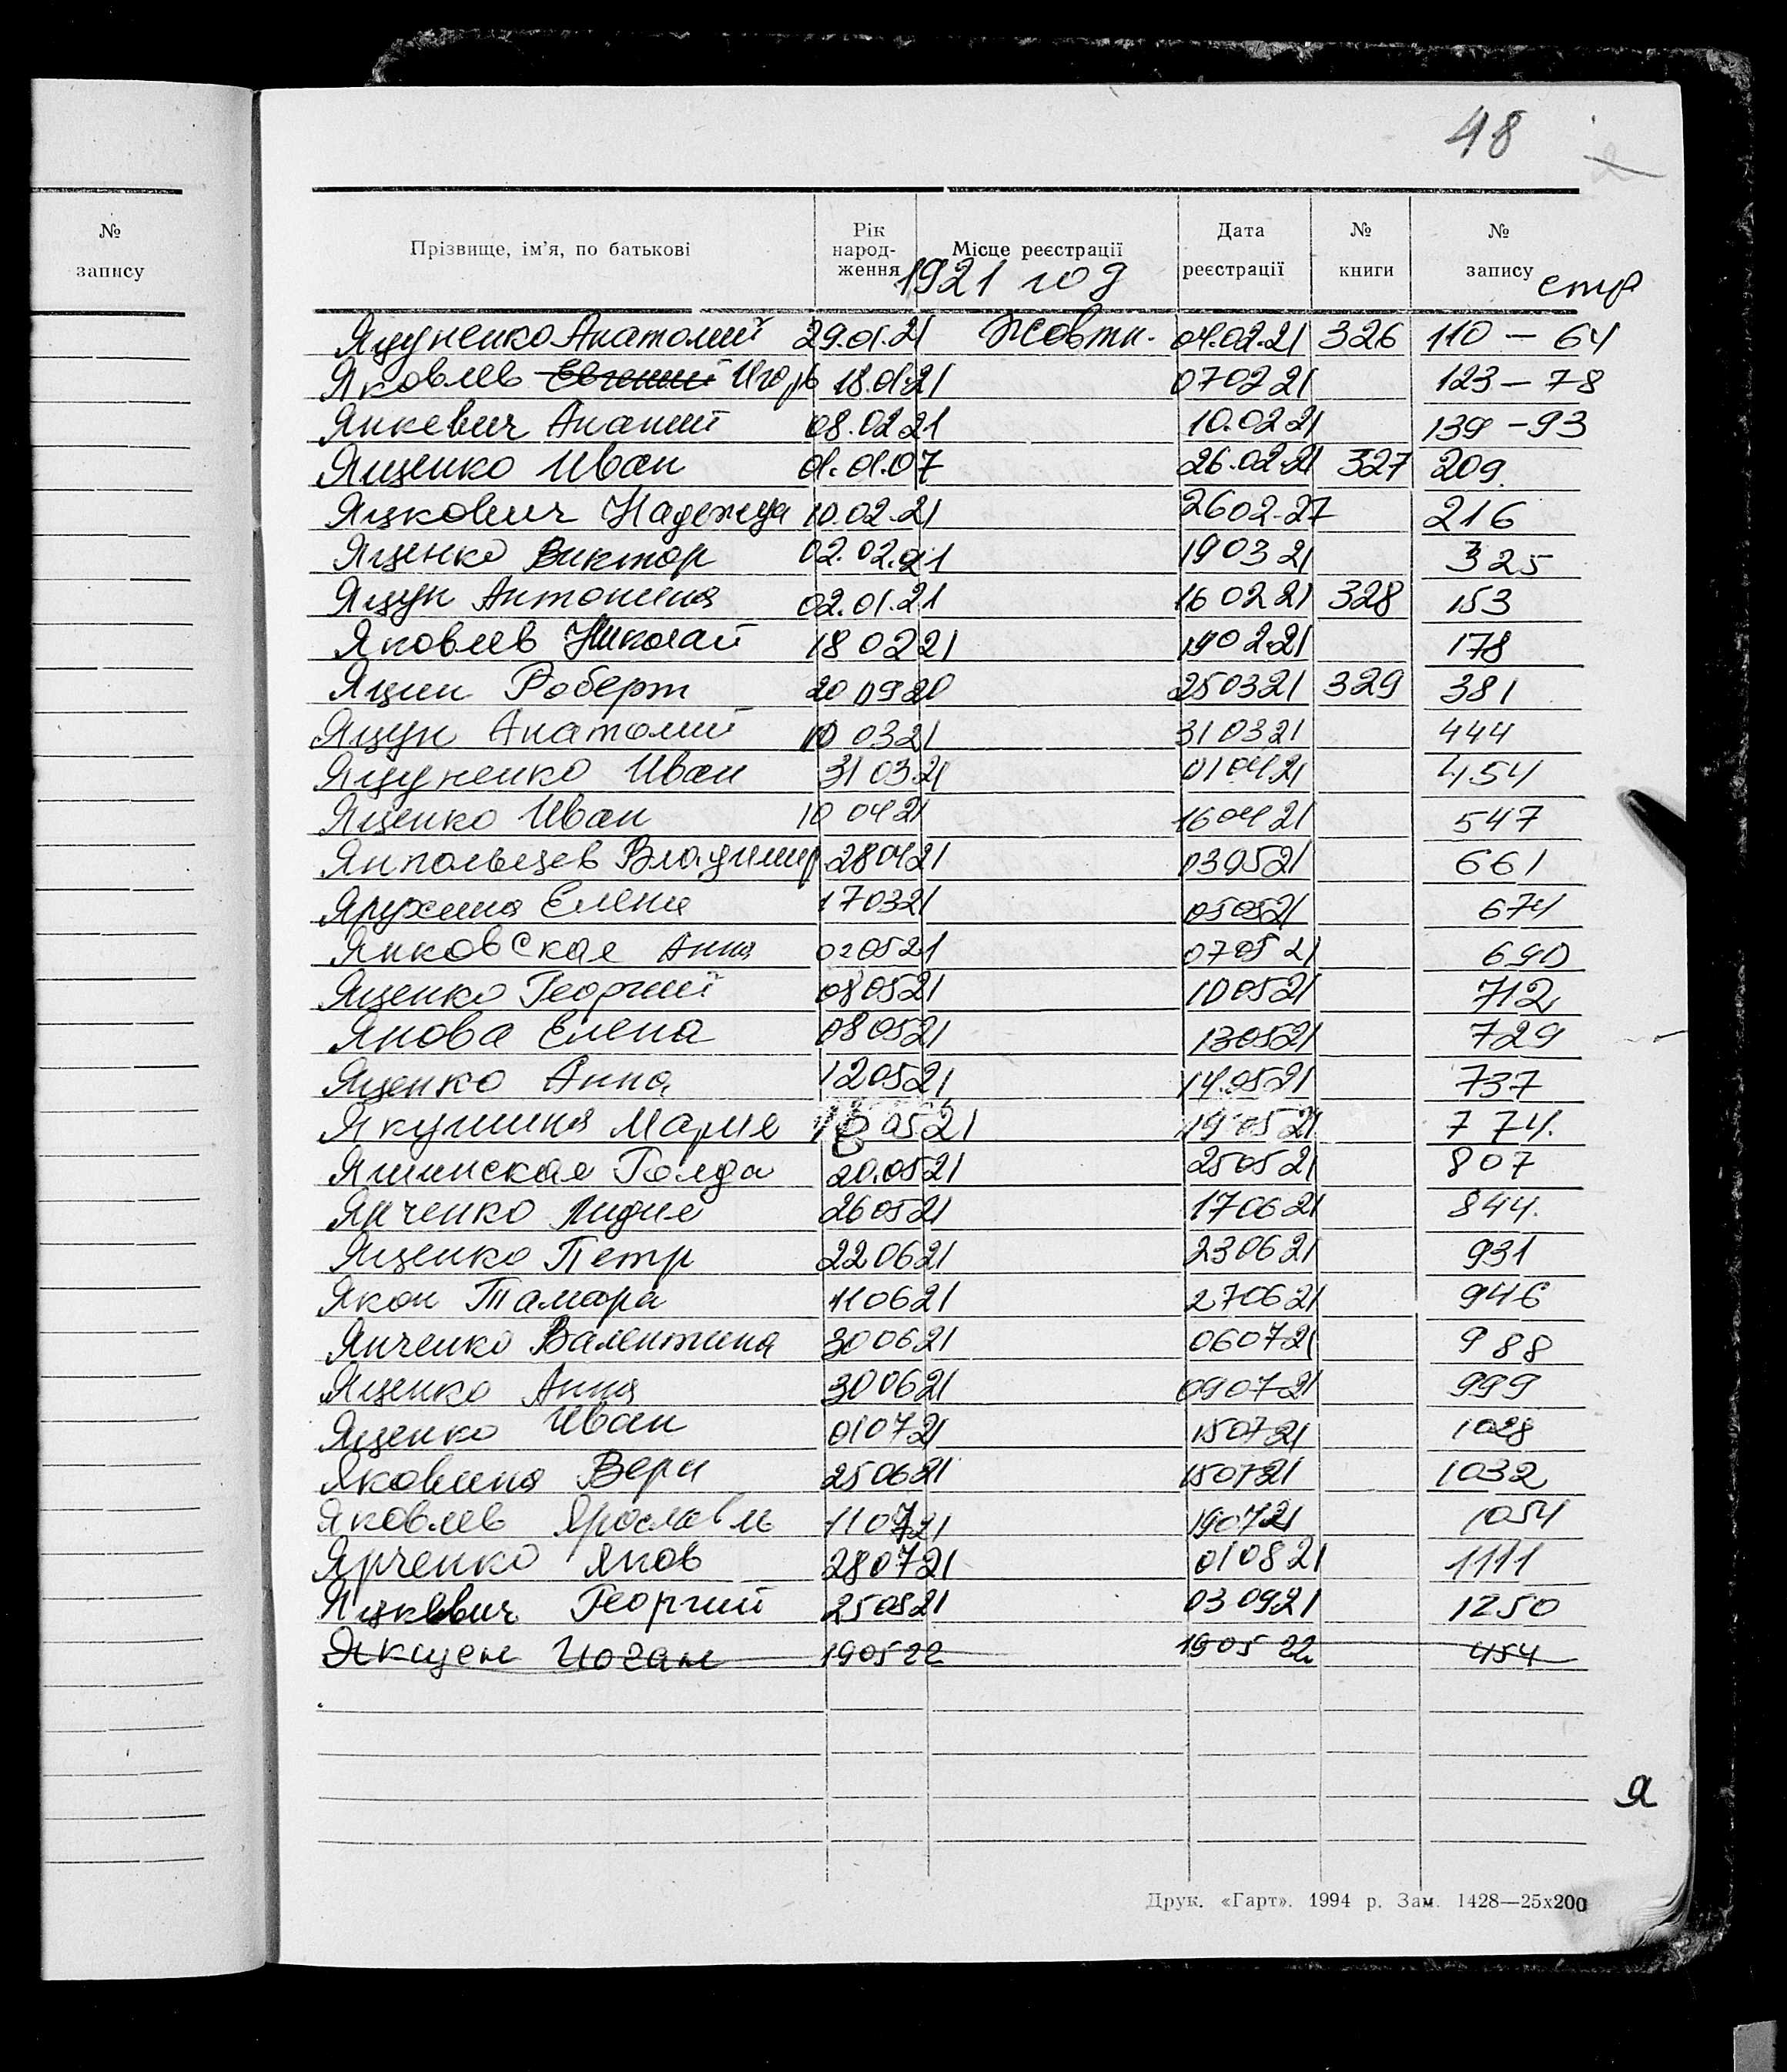 48
№
запису
Прізвище, ім'я, по батькові
Рік народ- ження
Місце реєстрації
Дата реєстрації
№ книги
№ запису
1921 год
стр
Яцуненко Анатолий 29.01.21 Жовтн. 04.02.21 326 110 – 64
Яковлев Евгений Игорь 18.01.21 070221 123 – 78
Янкевич Ананий 08.02 21 10.02 21 139 – 93
Ященко Иван 01.01.07 26.02.21 327 209.
Яцкович Надежда 10.02.21 2602.27 216
Яценко Виктор 02.02.21 190321 325
Яцун Антонина 02.01.21 160221 328 153
Яковлев Николай 180221 1902.21 178
Яцин Роберт 20 0920 250321 329 381
Яцун Анатолий 10 0321 310321 444
Яцуненко Иван 310321 010421 454
Яценко Иван 10 0421 160421 547
Янпольцев Владимир 280421 030521 661
Ярухина Елена 170321 050521 674
Янковская Анна 020521 070521 690
Яценко Георгий 080521 100521 712
Янова Елена 080521 130521 729
Яценко Анна 120521 14.0521 737
Якушина Мария 0521 190521 774.
Яшинская Голда 20.0521 250521 807
Янченко Лидия 260521 170621 844.
Ященко Петр 220621 230621 931
Якон Тамара 110621 270621 946
Янченко Валентина 300621 060721 988
Яценко Анна 300621 090721 999
Яценко Иван 010721 150721 1028
Яковина Вера 250621 150721 1032
Яковлев Ярослав 110721 190721 1054
Ярченко Яков 280721 010821 1111
Яцкевич Георгий 250821 030921 1250
Якцен Иоган 190522 190522 454
я
Друк. «Гарт». 1994 р. Зам. 1428—25х200